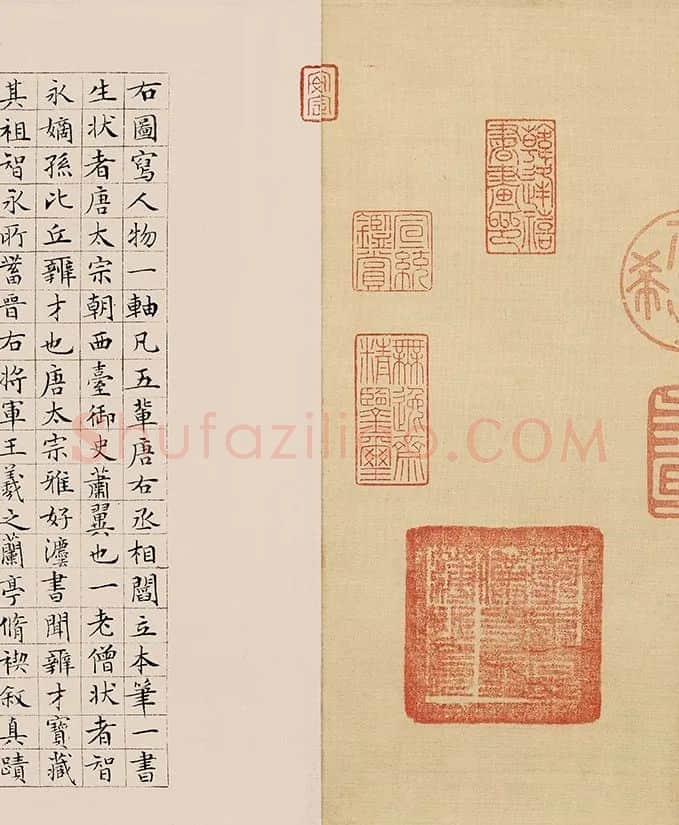 韓逢禧
書畫印
宣統
鑑賞
無逸齋
精鑒璽
右圖寫人物一軸凡五輩唐右丞相閻立本筆一書
生狀者唐太宗朝西臺御史蕭翼也一老僧狀者智
永嫡孫比丘辯才也唐太宗雅好灋書聞辯才寶藏
其祖智永所蓄晉右將軍王羲之蘭亭脩禊敘真蹟
Shufaziliao.COM